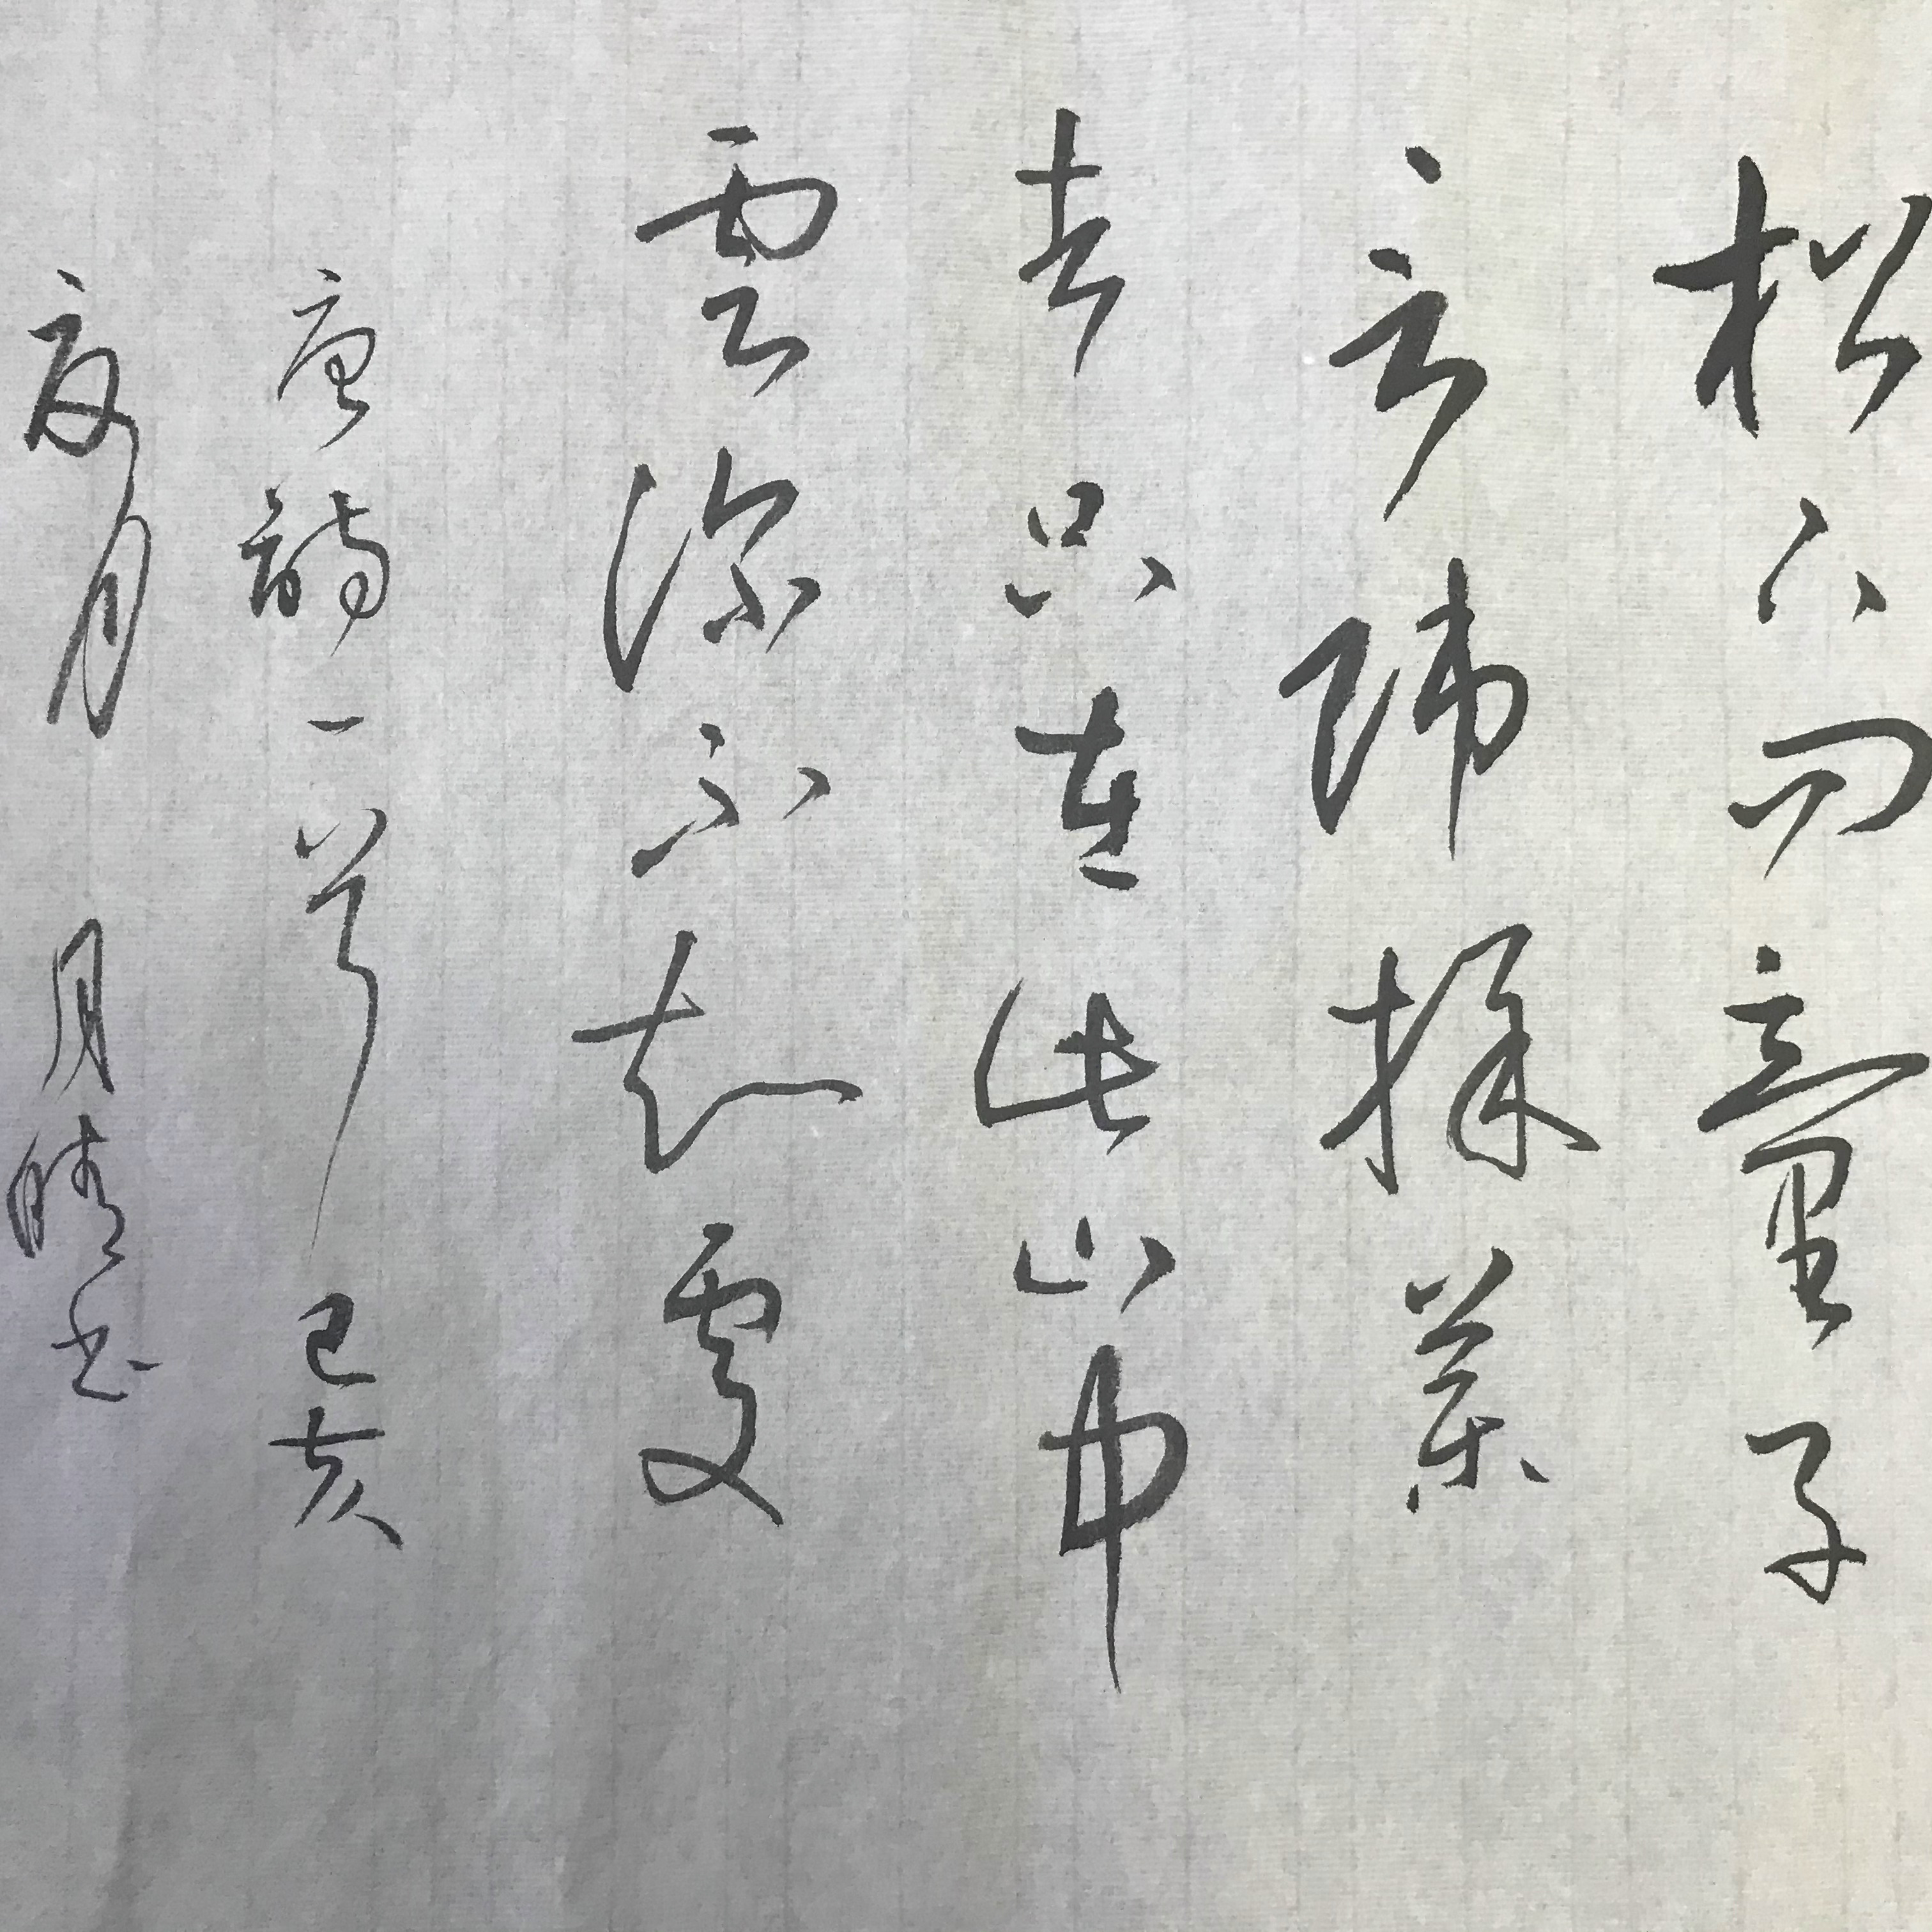 松下问童子
言师採葯
去只在此山中
雲深不知處
唐詩一首 己亥
夏月 月晴书